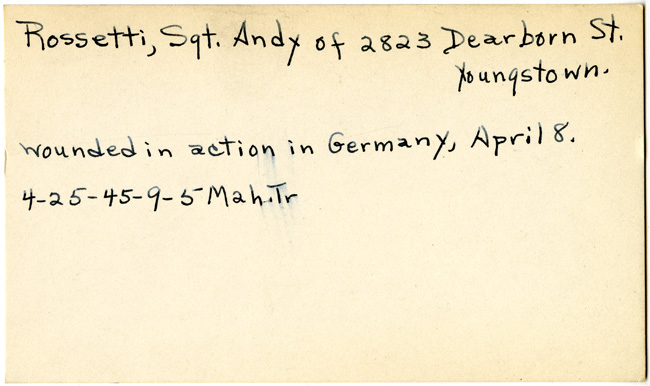 Rossetti, Sgt. Andy of 2823 Dearborn St.
Youngstown.
wounded in action in Germany, April 8.
4-25-45-9-5 Mah.Tr